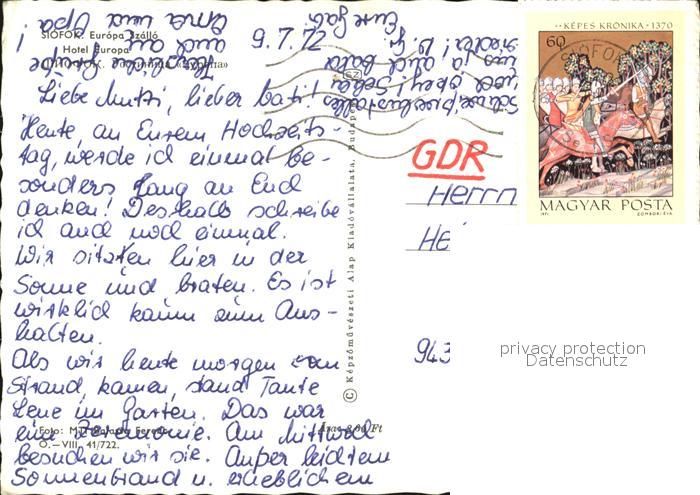 SIÓFOK. Európa Szálló
Hotel Europa
9.7.72
Liebe Mutti, lieber Vati!
Heute, an Eurem Hochzeits-
tag, werde ich einmal be-
sonders lang an Euch
denken! Deshalb schreibe
ich auch noch einmal.
Wir sitzen hier in der
Sonne und braten. Es ist
wirklich kaum zum Aus-
halten.
Als wir heute morgen vom
Strand kamen, stand Tante
Lene im Garten. Das war
eine Zeremonie. Am Mittwoch
besuchen wir sie. Außer leichtem
Sonnenbrand u. erheblichem
Eure Gabi
Oma und Opa
Foto:
O.—VIII. 41/722.
© Képzőművészeti Alap Kiadóvállalata, Budapest
Ft
GDR
Herrn
He
943
KÉPES KRÓNIKA · 1370
60
SIÓFOK
MAGYAR POSTA
1971
ZOMBORI ÉVA
privacy protection
Datenschutz